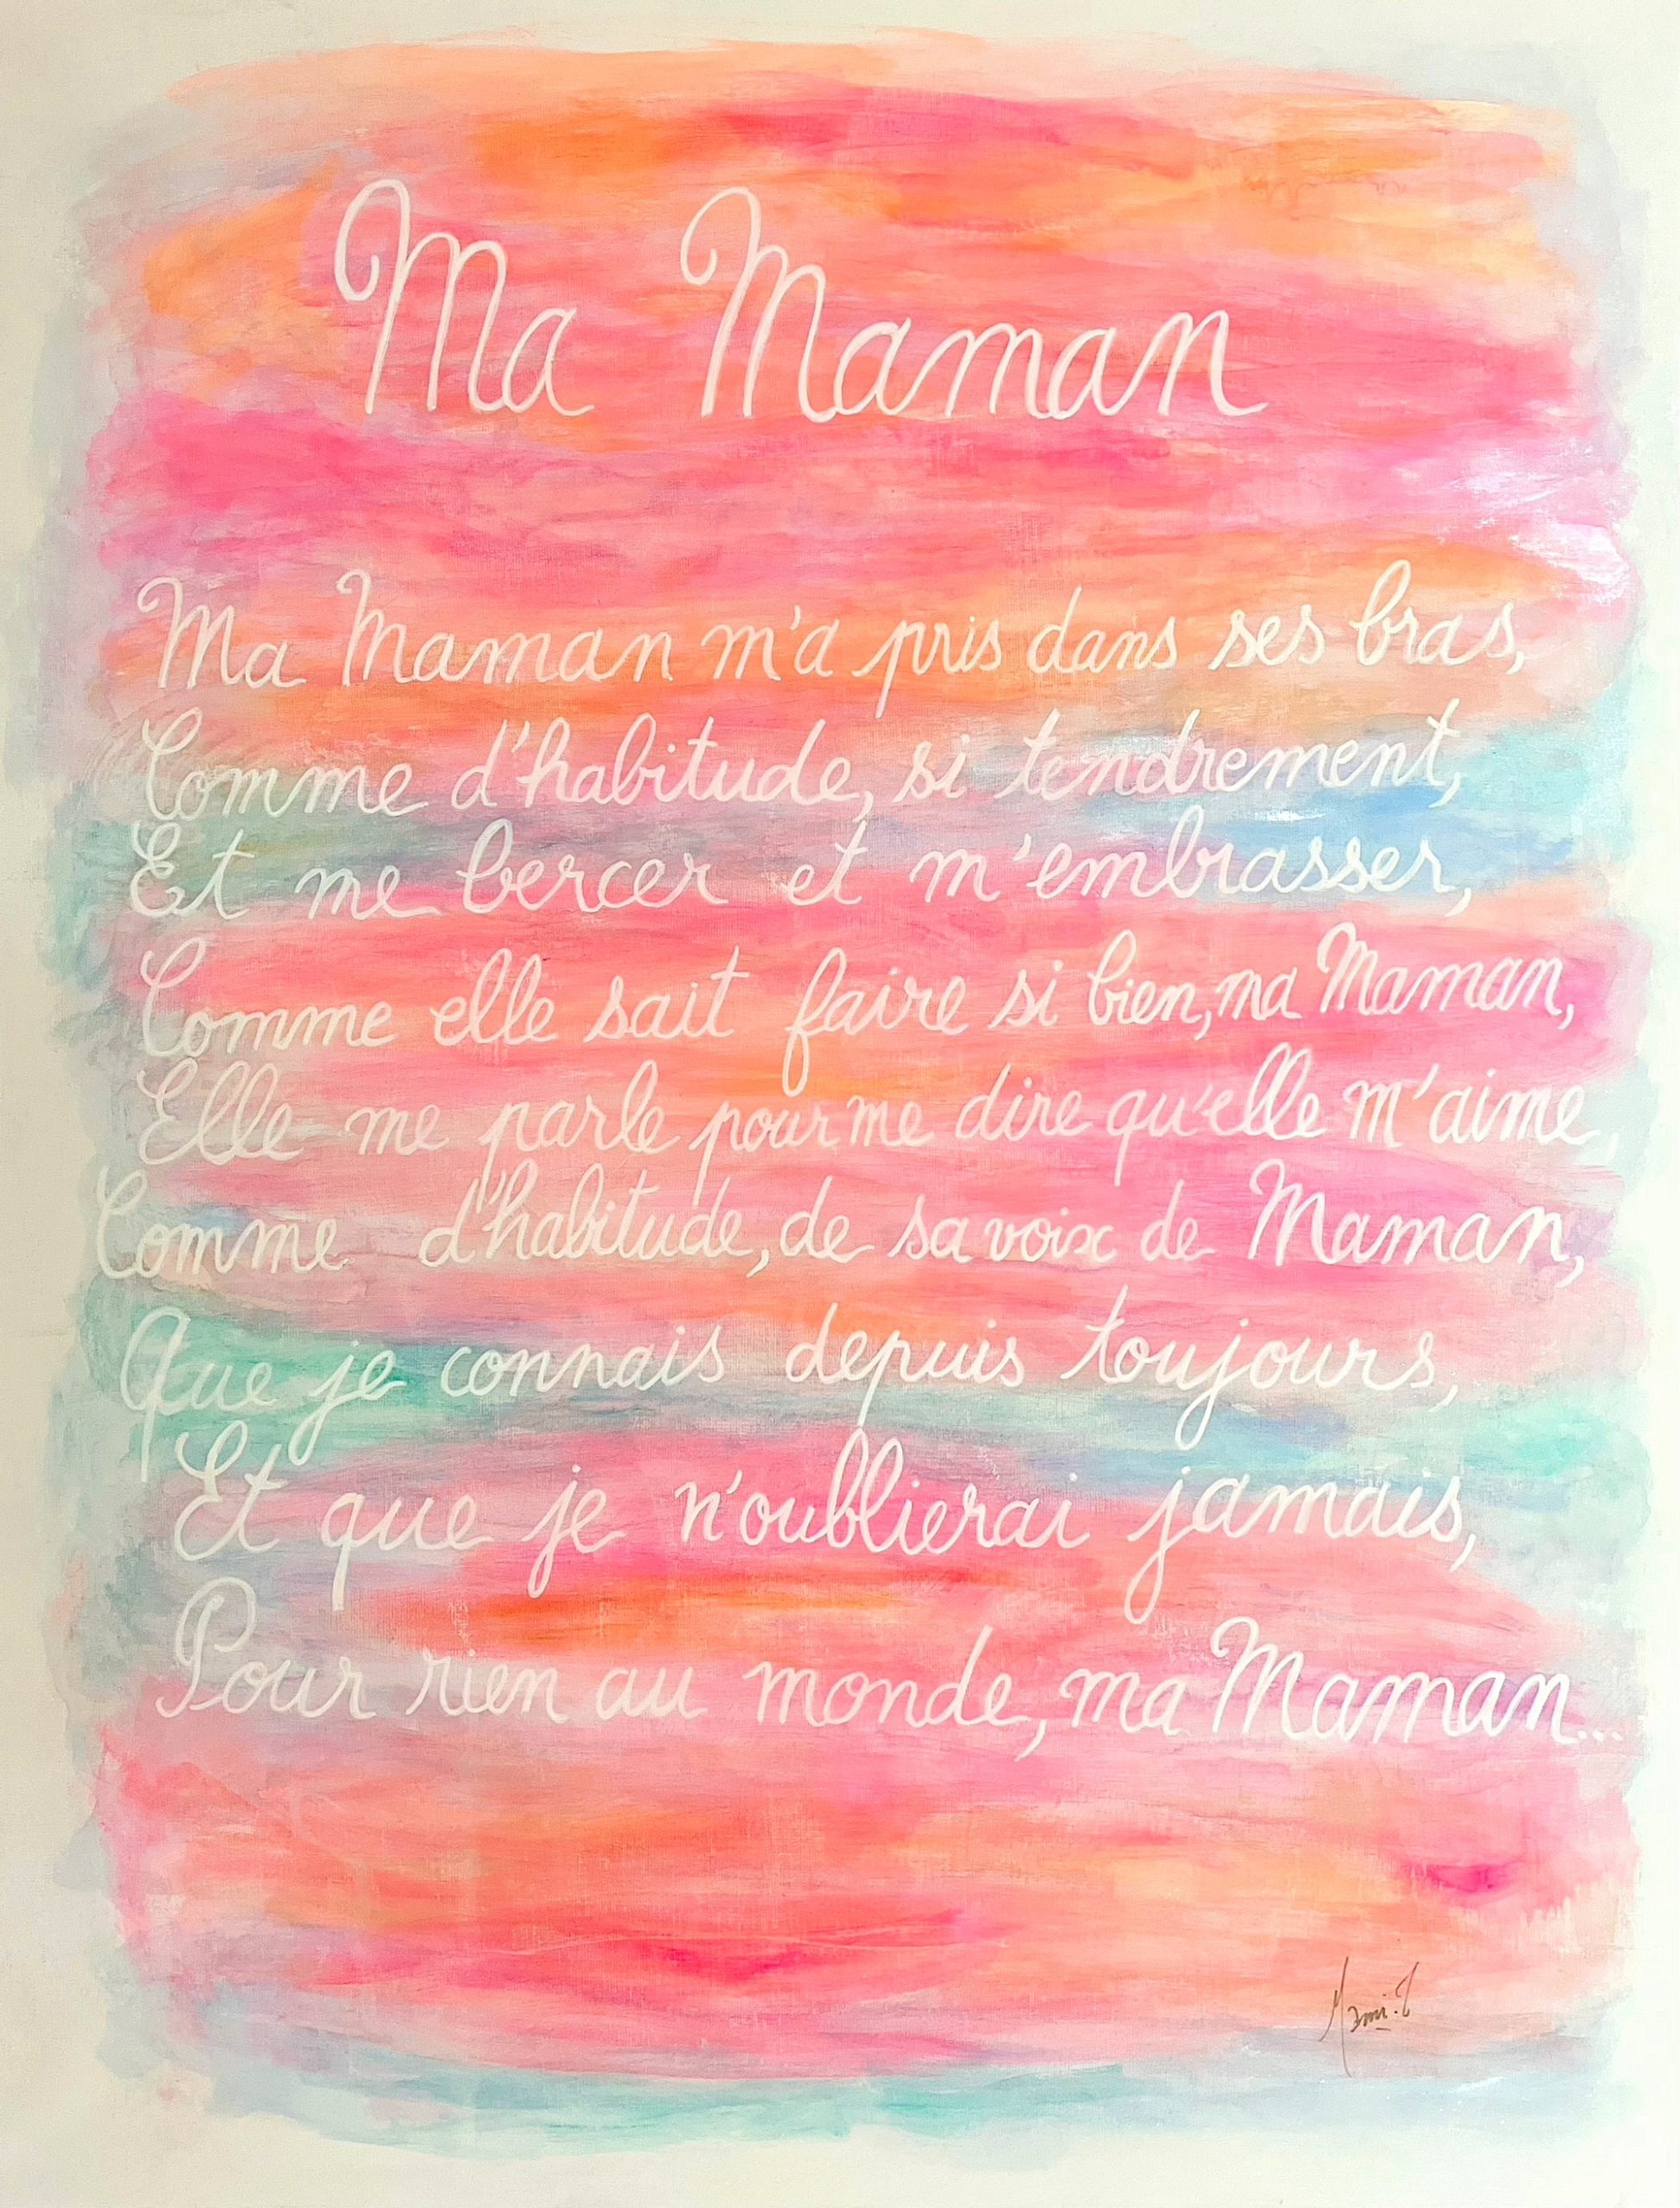 Ma Maman
Ma Maman m'a pris dans ses bras,
Comme d'habitude, si tendrement,
Et me bercer et m'embrasser,
Comme elle sait faire si bien, ma Maman,
Elle me parle pour me dire qu'elle m'aime,
Comme d'habitude, de sa voix de Maman,
Que je connais depuis toujours,
Et que je n'oublierai jamais,
Pour rien au monde, ma Maman...